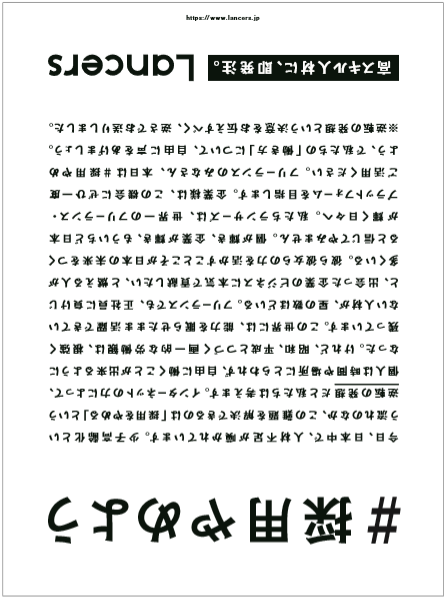 #採用やめよう
今日、日本中で、人材不足が囁かれています。少子高齢化とい
う流れのなか、この難題を解決できるのは「採用をやめる」という
逆転の発想だと私たちは考えます。インターネットの力によって、
個人は時間や場所にとらわれず、自由に働くことが出来るように
なった。けれど、昭和、平成とつづく画一的な労働観は、根強く
残っています。この世界には、能力を眠らせたまま活躍できてい
ない人材が、星の数ほどいる。フリーランスでも、正社員に負けじ
と、出会った企業のビジネスに本気で貢献したい、と燃える人が
多くいる。彼ら彼女らの力を活かすことこそが日本の未来をつく
ると信じてやみません。個が輝き、企業が輝き、もういちど日本
が輝く日々へ。私たちランサーズは、世界一のフリーランス・
プラットフォームを目指します。企業様は、この機会にぜひ一度
ご活用ください。フリーランスのみなさん、本日は＃採用やめ
よう、で私たちの「働き方」について、自由に声をあげましょう。
※逆転の発想という決意をお伝えすべく、逆さでお送りしました。
高スキル人材に、即発注。
Lancers
https://www.lancers.jp